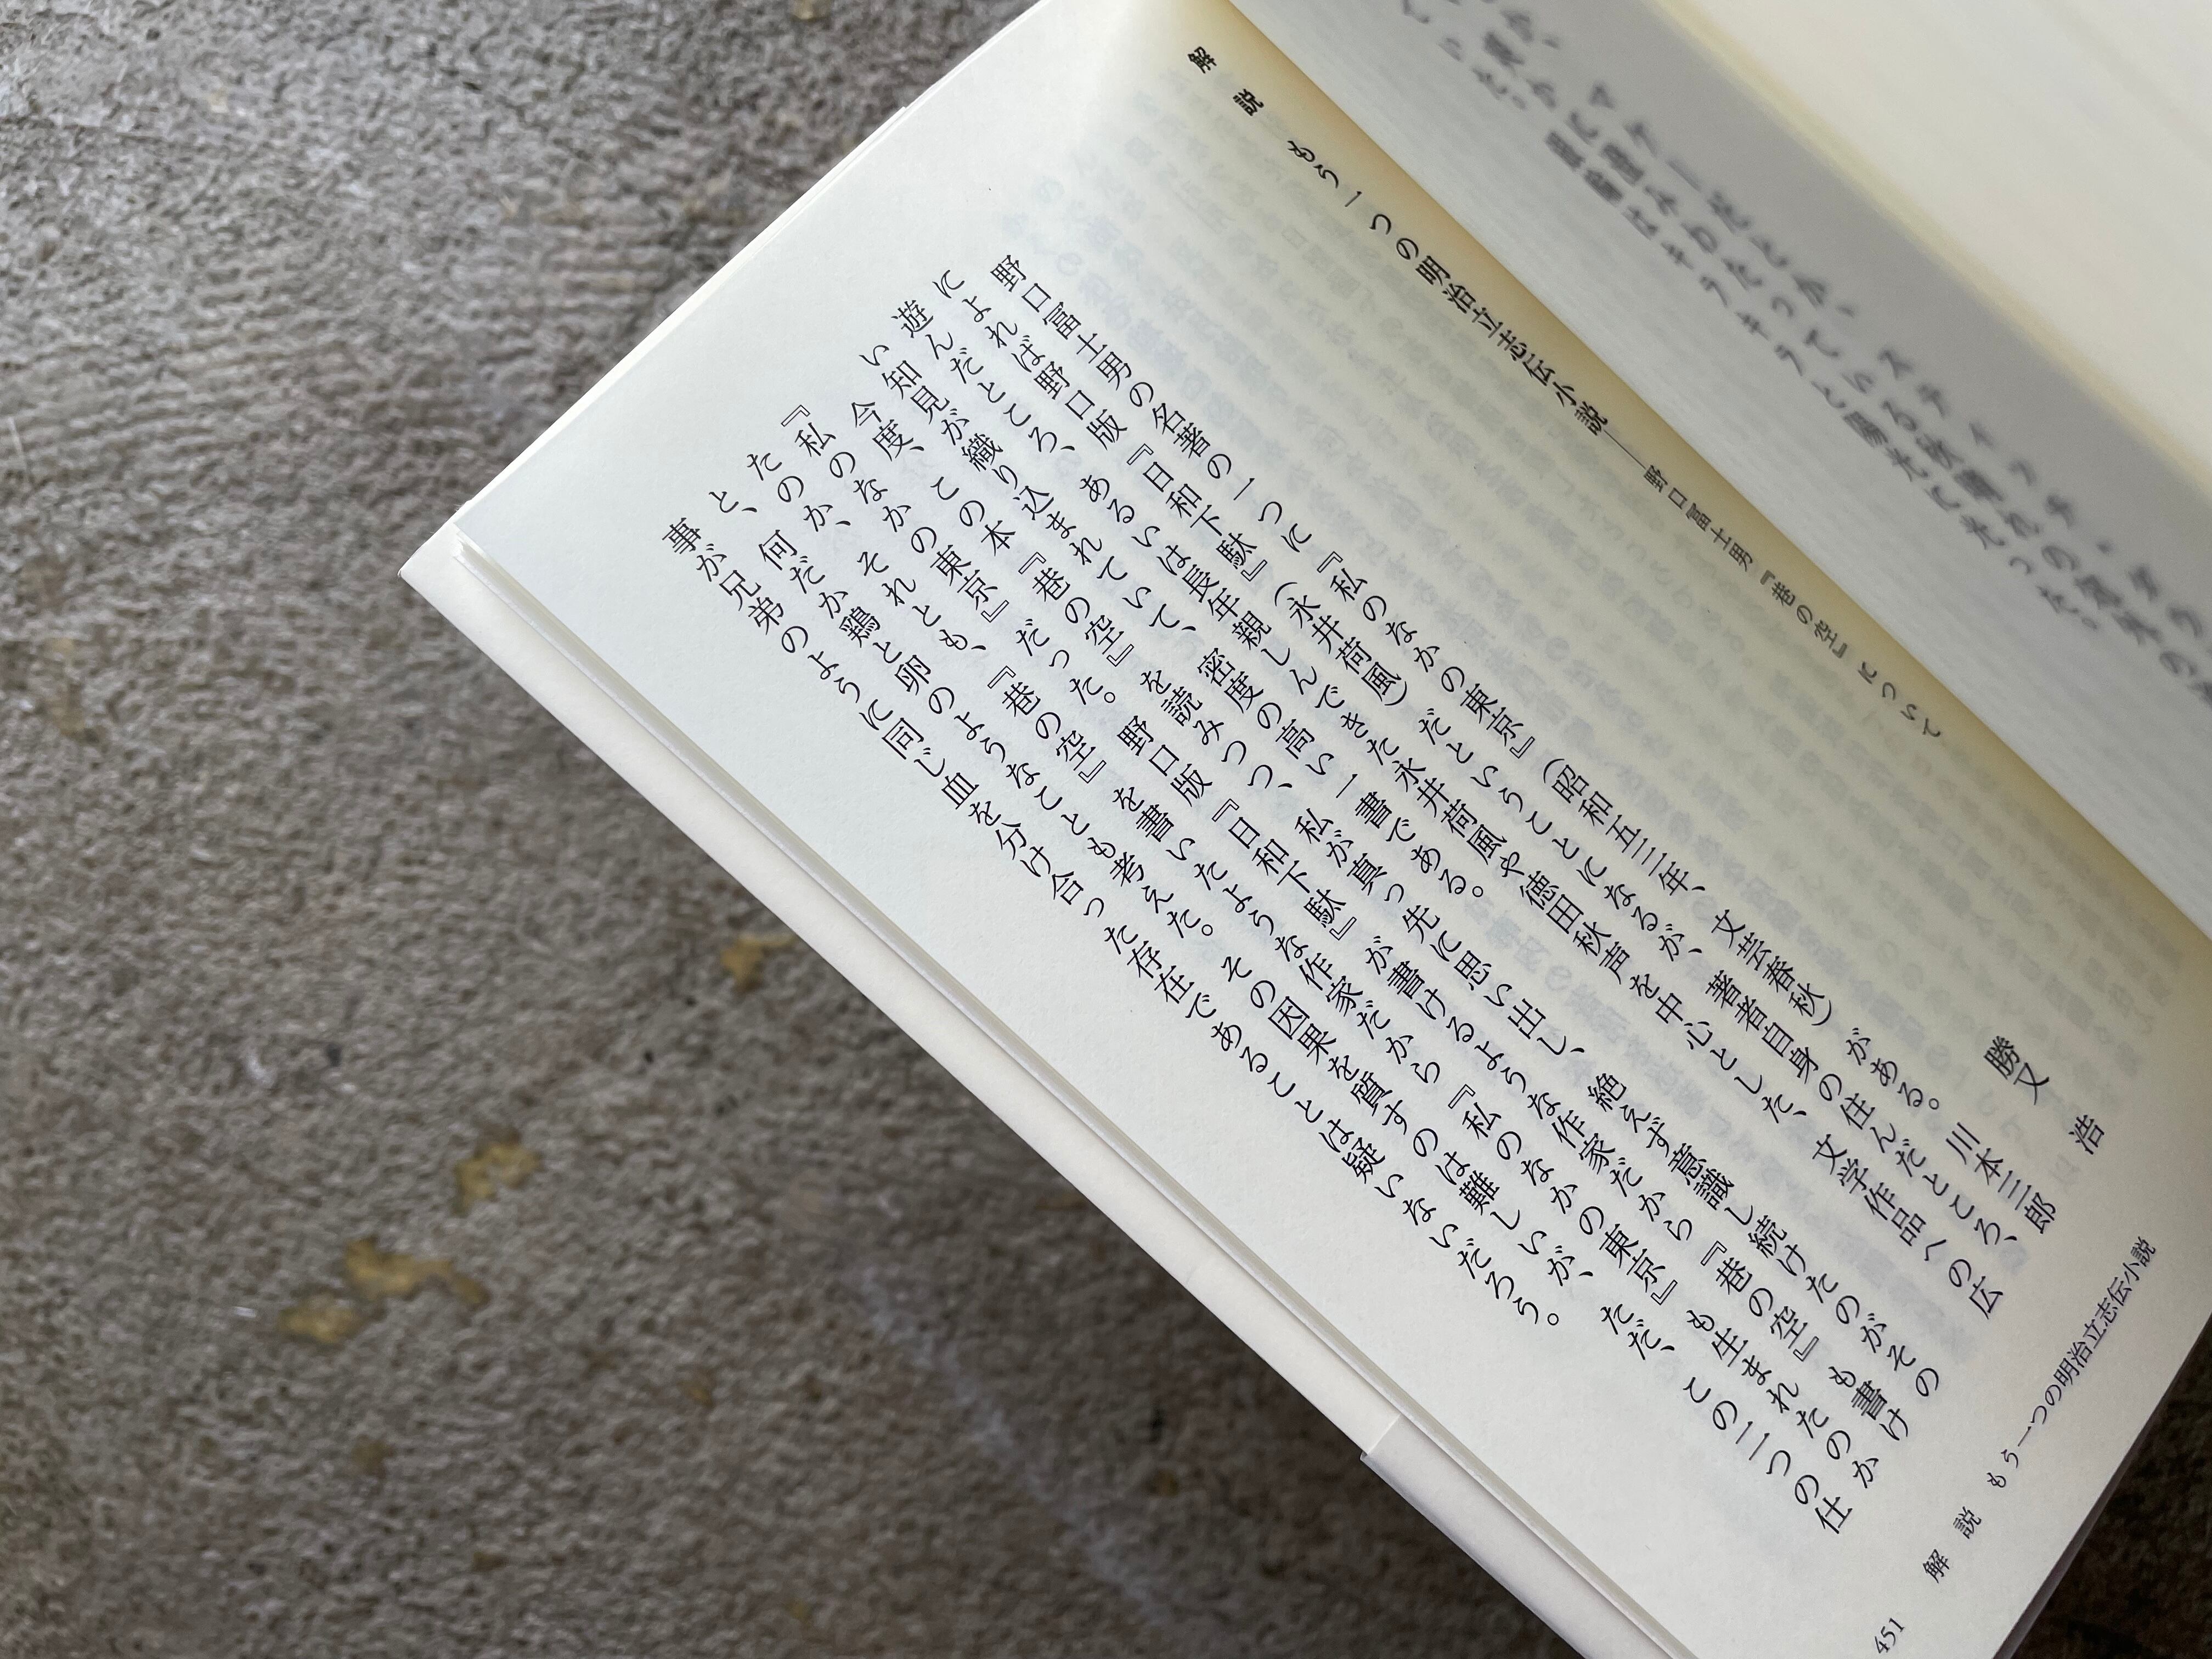 解　説　もう一つの明治立志伝小説――野口冨士男『巷の空』について
勝又　浩
野口冨士男の名著の一つに『私のなかの東京』（昭和五三年、文芸春秋）がある。川本三郎
によれば野口版『日和下駄』（永井荷風）だということになるが、著者自身の住んだところ、
遊んだところ、あるいは長年親しんできた永井荷風や徳田秋声を中心とした、文学作品への広
い知見が織り込まれていて、密度の高い一書である。
今度、この本『巷の空』を読みつつ、私が真っ先に思い出し、絶えず意識し続けたのがその
『私のなかの東京』だった。野口版『日和下駄』が書けるような作家だから『巷の空』も書け
たのか、それとも、『巷の空』を書いたような作家だから『私のなかの東京』も生まれたのか
と、何だか鶏と卵のようなことも考えた。その因果を質すのは難しいが、ただ、この二つの仕
事が兄弟のように同じ血を分け合った存在であることは疑いないだろう。
解　説　もう一つの明治立志伝小説
451